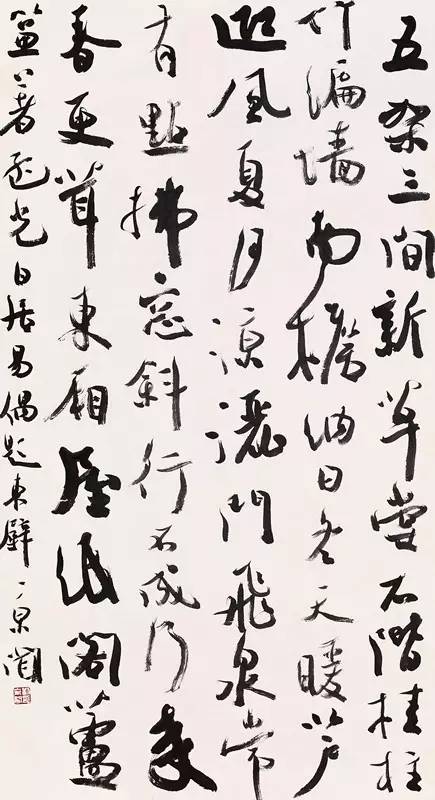 五架三間新草堂石階桂柱
竹編墻南檐納日冬天暖
迎風夏月涼灑門飛泉常
有點拂窓斜行不成行來
春更葺東廂屋紙閣蘆
著孟光白居易偶題東壁